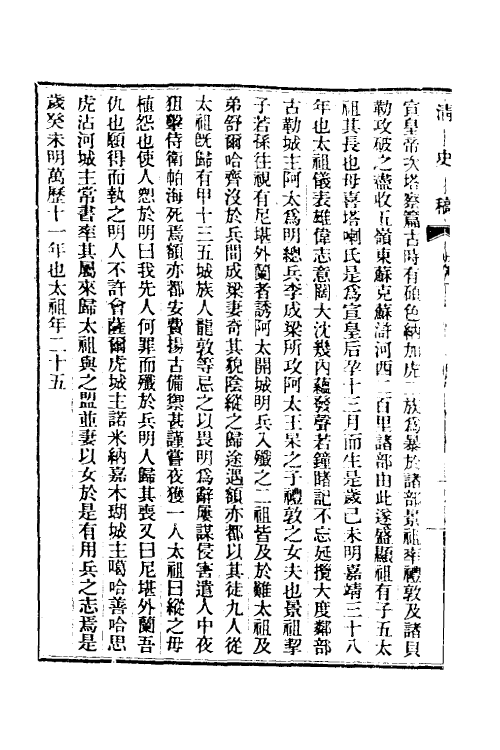 清史稿
宣皇帝次塔察篇古時有碩色納加虎二族爲暴於諸部景祖率禮敦及諸貝
勒攻破之盡收五嶺東蘇克蘇滸河西二百里諸部由此遂盛顯祖有子五太
祖其長也母喜塔喇氏是爲宣皇后孕十三月而生是歲己未明嘉靖三十八
年也太祖儀表雄偉志意闊大沈幾內蘊發聲若鐘睹記不忘延攬大度鄰部
古勒城主阿太爲明總兵李成梁所攻阿太王杲之子禮敦之女夫也景祖挈
子若孫往視有尼堪外蘭者誘阿太開城明兵入殲之二祖皆及於難太祖及
弟舒爾哈齊沒於兵間成梁妻奇其貌陰縱之歸途遇額亦都以其徒九人從
太祖旣歸有甲十三五城族人龍敦等忌之以畏明爲辭屢謀侵害遣人中夜
狙擊侍衛帕海死焉額亦都安費揚古備禦甚謹嘗夜獲一人太祖曰縱之毋
植怨也使人愬於明曰我先人何罪而殲於兵明人歸其喪又曰尼堪外蘭吾
仇也願得而執之明人不許會薩爾虎城主諾米納嘉木瑚城主噶哈善哈思
虎沾河城主常書率其屬來歸太祖與之盟並妻以女於是有用兵之志焉是
歲癸未明萬歷十一年也太祖年二十五